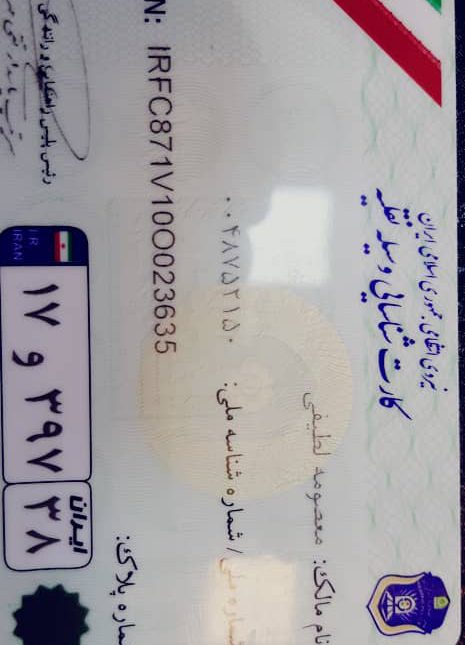 نیروی انتظامی جمهوری اسلامی ایران
کارت شناسایی وسیله نقلیه
نام مالک: معصومه لطیفی
شماره ملی / شماره شناسه ملی: ۰۰۴۸۷۵۲۱۵۰
N: IRFC871V10O023635
شماره پلاک:
I.R. IRAN
۱۷ و ۳۹۷
ایران ۳۸
رئیس پلیس راهنمایی و رانندگی